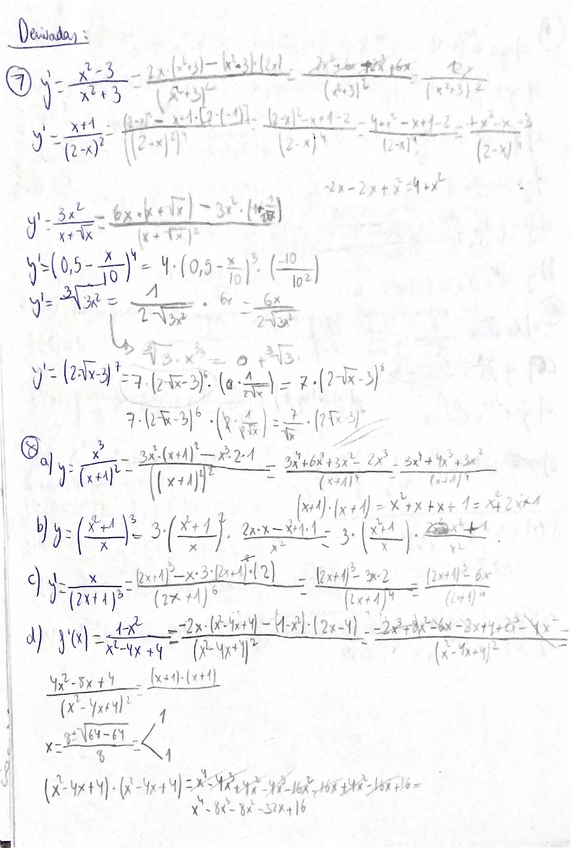 Derivadas:
7 y' = x²-3 / x²+3 = 2x·(x²+3) - (x²-3)·(2x) / (x²+3)² = / (x²+3)² = 12x / (x²+3)²
y' = x+1 / (2-x)² = (2-x)² - x+1·[2·(-1)] / ((2-x)²)⁴ = (2-x)²-x+1-2 / (2-x)⁴ = 4+x²-x+1-2 / (2-x)⁴ = / (2-x)
-2x-2x+x²=4+x²
y' = 3x² / x+√x = 6x·(x+√x) - 3x²·(1+ 1/2√x) / (x+√x)²
y' = (0,5 - x/10)⁴ = 4·(0,5 - x/10)³·(-10/10²)
y' = ³√3x² = 1 / 2√3x² · 6x = 6x / 2√3x²
³√3·x³ = 0+³√3·
y' = (2√x-3)⁷ = 7·(2√x-3)⁶·( · 1/2√x) = 7·(2√x-3)⁶
7·(2√x-3)⁶·(2· 1/2√x) = 7/√x·(2√x-3)⁶
8 a) y = x³ / (x+1)² = 3x²·(x+1)² - x³·2·1 / ((x+1)²)² = 3x⁴+6x³+3x²-2x³ / (x+1)⁴ = 3x⁴+4x³+3x² / (x+1)⁴
(x+1)·(x+1) = x²+x+x+1 = x²+2x+1
b) y = (x²+1 / x)³ = 3·(x²+1 / x)²· 2x·x-x²+1·1 / x² = 3·(x²+1 / x)· / x²
c) y = x / (2x+1)³ = (2x+1)³-x·3·(2x+1)²·(2) / (2x+1)⁶ = (2x+1)³-3x·2 / (2x+1)⁴ = (2x+1)³-6x / (2x+1)⁴
d) y'(x) = 1-x² / x²-4x+4 = -2x·(x²-4x+4)-(1-x²)·(2x-4) / (x²-4x+4)² = -2x³+8x²-8x-2x+4+2x³-4x² / (x²-4x+4)² =
4x²-8x+4 / (x²-4x+4)² = (x+1)·(x+1)
x = 8±√64-64 / 8 < 1 1
(x²-4x+4)·(x²-4x+4) = x⁴-4x³+4x²-4x³-16x²-16x+4x²-16x+16 =
x⁴-8x³-8x²-32x+16